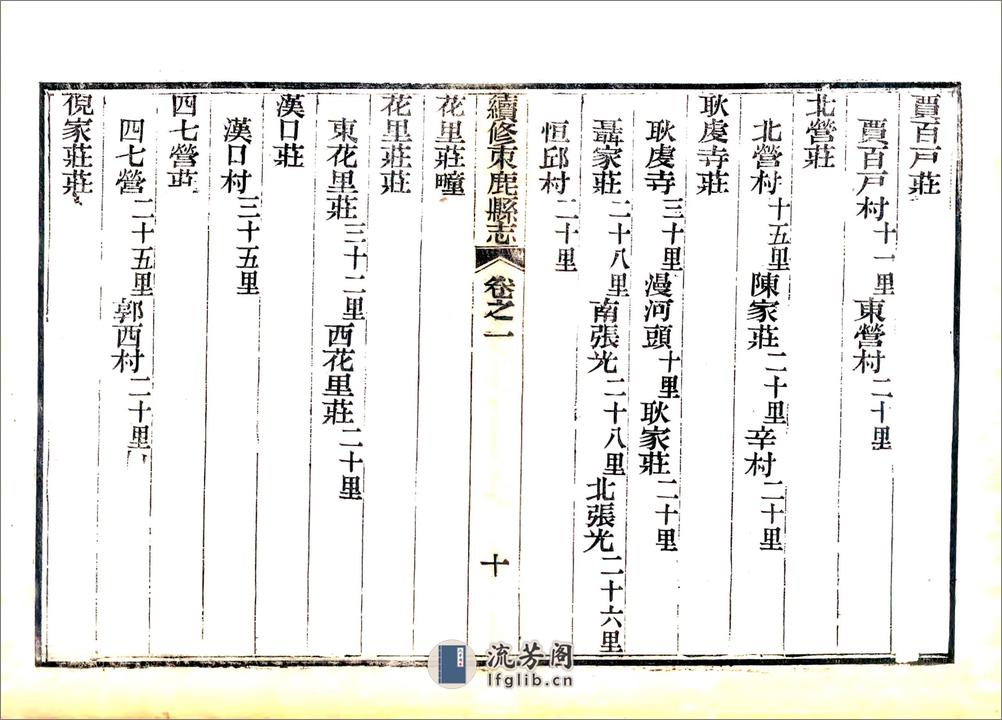 賈百戸莊
賈百戸村十一里東營村二十里
北營莊
北營村十五里陳家莊二十里辛村二十里
耿虔寺莊
耿虔寺三十里漫河頭十里耿家莊二十里
聶家莊二十八里南張光二十八里北張光二十六里
恒邱村二十里
續修束鹿縣志 卷之一 十
花里莊疃
花里莊莊
東花里莊三十二里西花里莊二十里
漢口莊
漢口村三十五里
四七營莊
四七營二十五里郭西村二十里
倪家莊莊
流芳阁
lfglib.cn